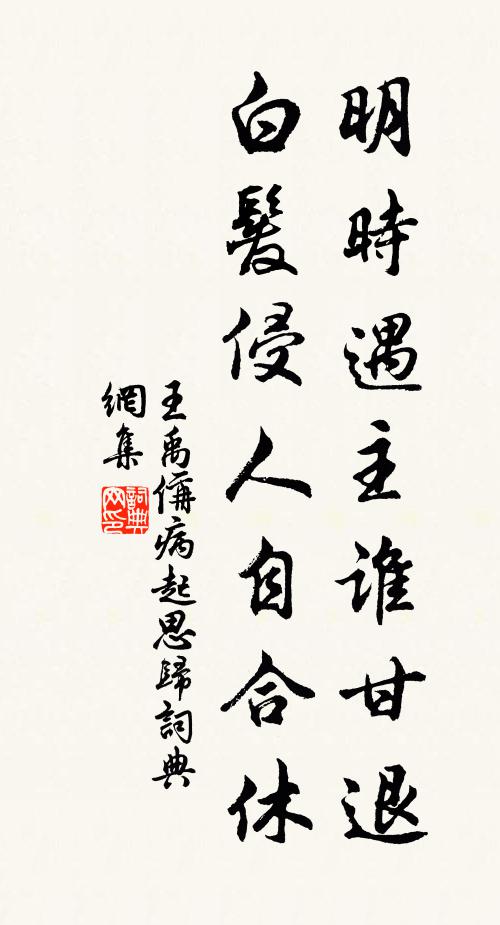 明時遇主誰甘退
白髮侵人自合休
王禹偁病起思歸詞典
網集
詞典
网印